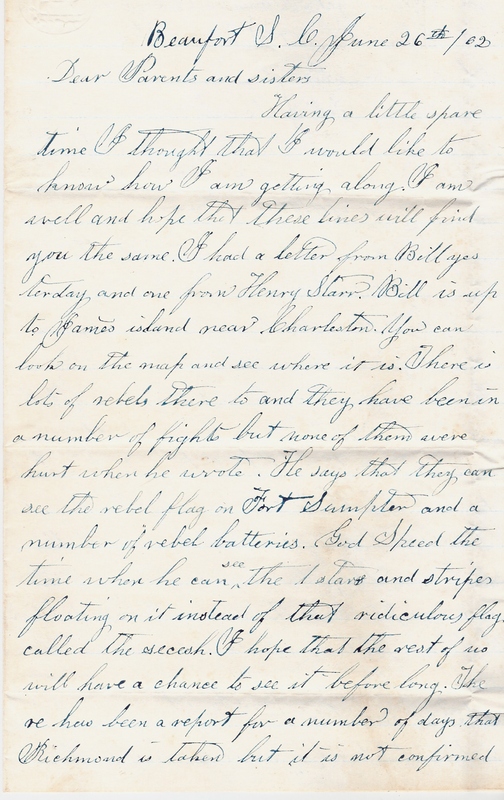 Beaufort S. C. June 26th/62
Dear Parents and sisters
Having a little spare
time I thought that I would like to
know how I am getting along. I am
well and hope that these lines will find
you the same. I had a letter from Bill yes
terday and one from Henry Starr. Bill is up
to James island near Charleston. You can
look on the map and see where it is. There is
lots of rebels there to and they have been in
a number of fights but none of them were
hurt when he wrote. He says that they can
see the rebel flag on Fort Sumpter and a
number of rebel batteries. God Speed the
time when he can see the stars and stripes
floating on it instead of that ridiculous flag
called the secesh. I hope that the rest of us
will have a chance to see it before long. The
re has been a report for a number of days that
Richmond is taken but it is not confirmed